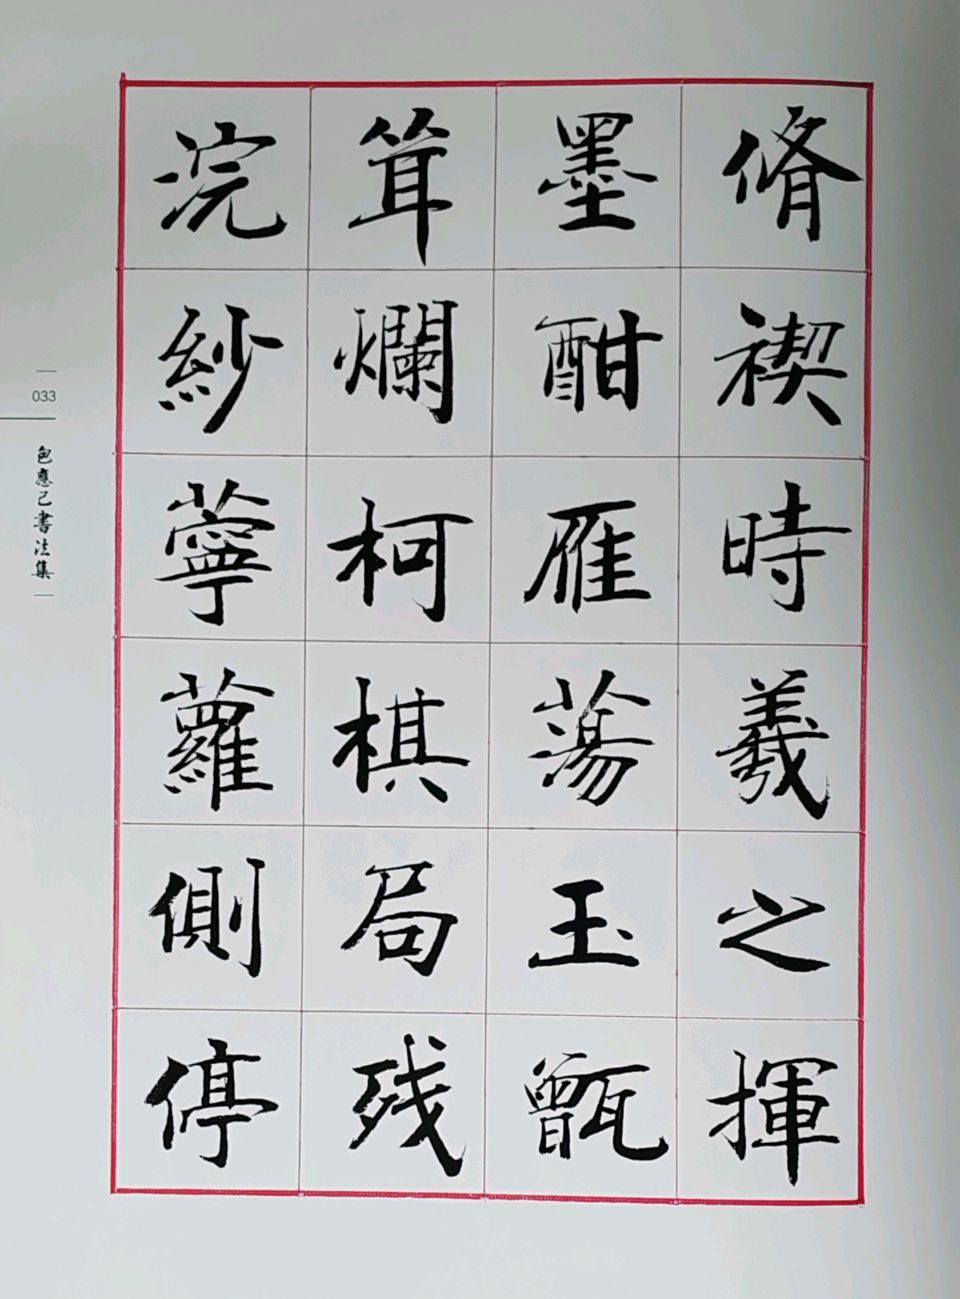 脩禊時羲之揮
墨酣雁蕩玉甑
爛柯棋局残
浣紗薴蘿側停
033
包應己書法集